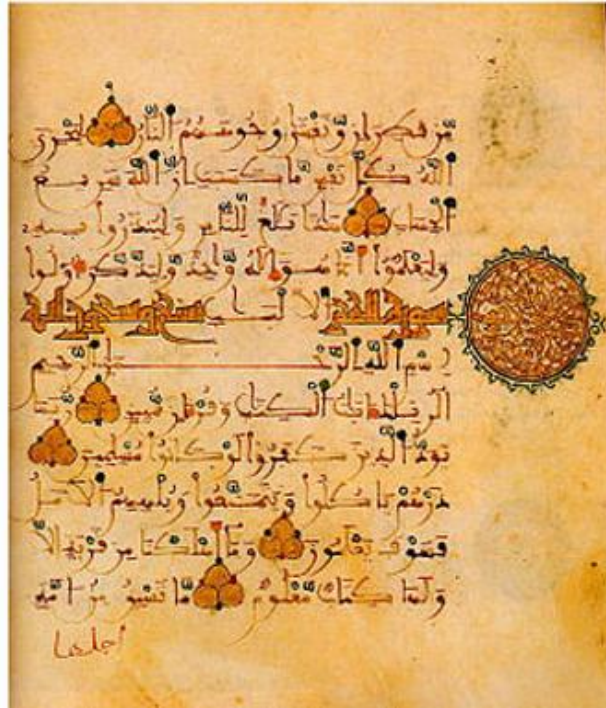 من قطران وتغشى وجوههم النار ليجزي
الله كل نفس ما كسبت ان الله سريع
الحساب هذا بلغ للناس ولينذروا به
وليعلموا انما هو اله وحد وليذكر اولوا
سورة الحجر الالباب تسع وتسعون اية
بسم الله الرحمن الرحيم
الر تلك ايت الكتب وقران مبين ربما
يود الذين كفروا لو كانوا مسلمين
ذرهم ياكلوا ويتمتعوا ويلههم الامل
فسوف يعلمون وما اهلكنا من قرية الا
ولها كتاب معلوم ما تسبق من امة
اجلها